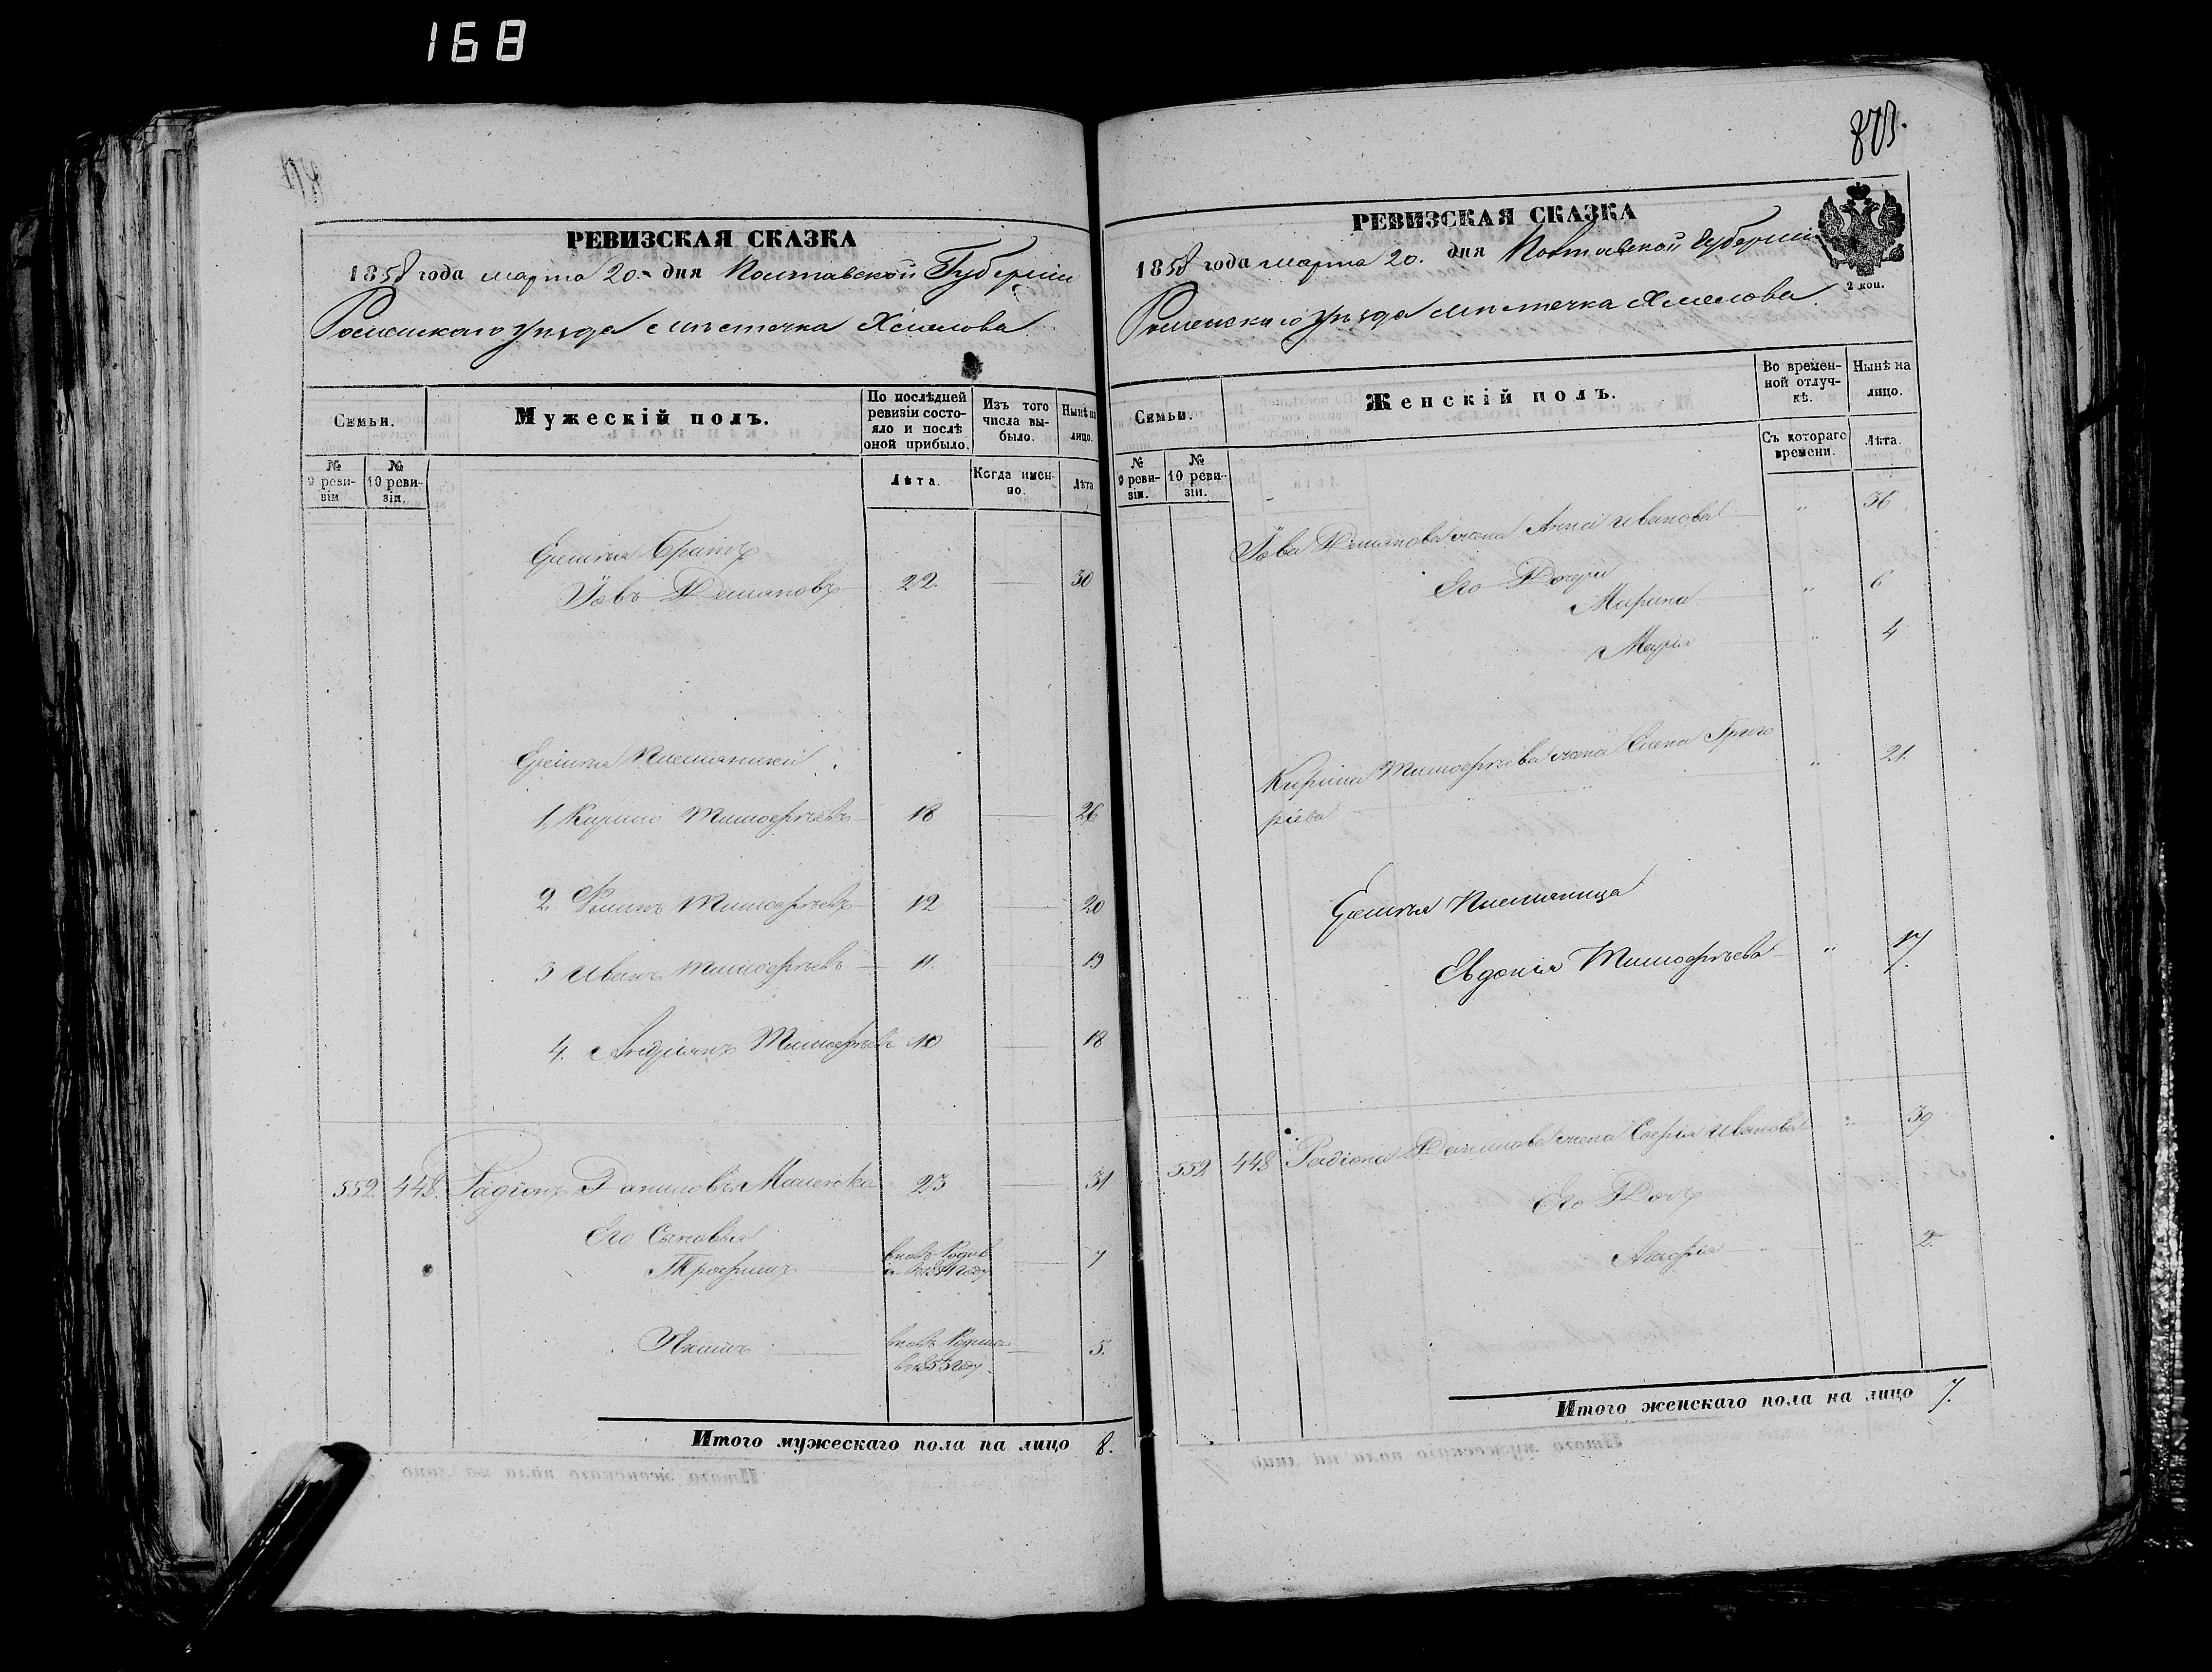 168
РЕВИЗСКАЯ СКАЗКА
1858 года марта 20. дня Полтавской Губерніи
Роменскаго уѣзда мѣстечка Хмелова
Семьи.
Мужескій полъ.
По послѣдней ревизіи состояло и послѣ оной прибыло.
Изъ того числа выбыло.
Нынѣ на лицо.
№ 9 ревизіи
№ 10 ревизіи.
Лѣта.
Когда именно.
Лѣта
Братъ
Іовъ Демяновъ 22. 30
Племянники
1, Кирило Тимофѣевъ 18 26
2. Тимофѣевъ 12 20
3 Иванъ Тимофѣевъ 11. 19
4. Андріянъ Тимофѣевъ 10 18
552. 448. Радіонъ Даниловъ 23 31
Его Сыновья
Трофимъ вновь родил. въ 1851 году 7
Якимъ вновь родился въ 1853 году 5.
Итого мужескаго пола на лицо 8.
873.
РЕВИЗСКАЯ СКАЗКА
1858 года марта 20. дня Полтавской Губерніи
2 коп.
Роменскаго уѣзда мѣстечка Хмелова.
Семьи.
Женскій полъ.
Во временной отлучкѣ.
Нынѣ на лицо.
№ 9 ревизіи.
№ 10 ревизіи.
Съ котораго времени.
Лѣта.
Іова Демянова жена Анна Иванова " 36
Его Дочери
Марина " 6
Марія " 4
Кирила Тимофѣева жена Елена Григо
ріева " 21.
Племянница
Евдокія Тимофѣева " 17.
552 448 Радіона Данилова жена Софія Иванова " 39
Его Дочь
Агафія " 2.
Итого женскаго пола на лицо 7.